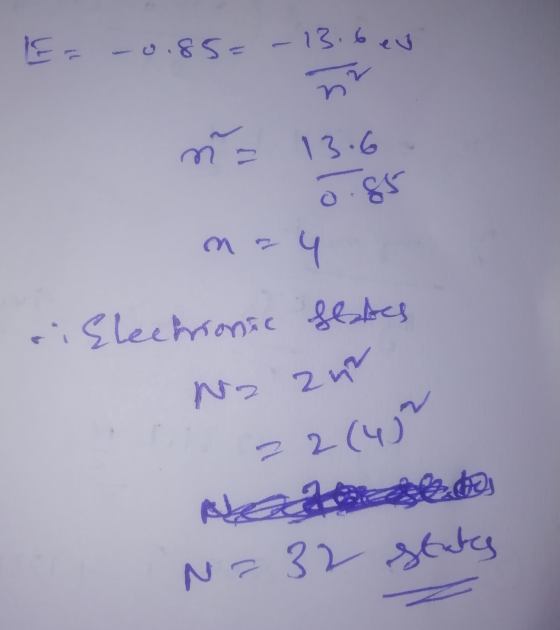 E = -0.85 = -13.6 ev
n²
n² = 13.6
0.85
n = 4
∴ Electronic states
N = 2n²
= 2(4)²
N = 32 states